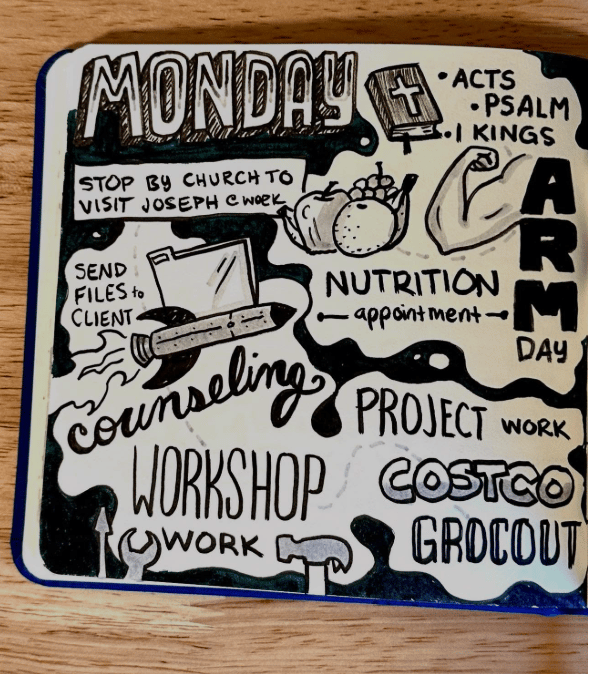 MONDAY
• ACTS
• PSALM
• 1 KINGS
STOP BY CHURCH TO
VISIT JOSEPH @ WORK
ARM
DAY
SEND
FILES to
CLIENT
NUTRITION
appointment
counseling
PROJECT WORK
WORKSHOP
WORK
COSTCO
GROCOUT